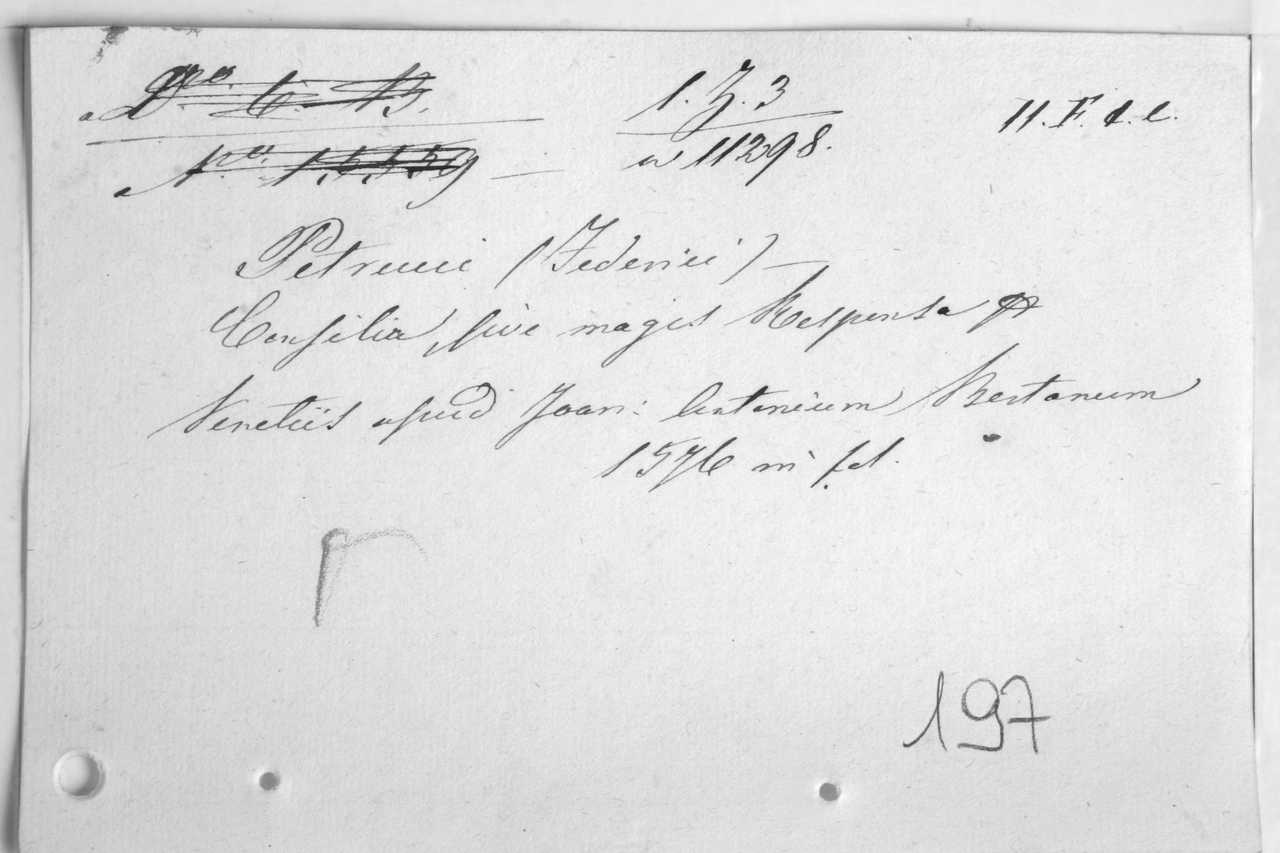 1.Z.3
11.F.1.e.
n 11298.
Petrucci (Federici)
Consilia, sive magis Responsa
Venetiis apud Joan: Antonium Bertanum
1576 in fol.
197